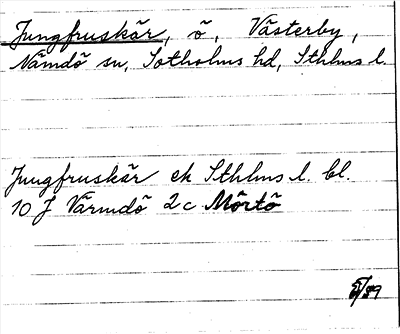 Jungfruskär, ö, Västerby,
Nämdö sn, Sotholms hd, Sthlms l.
Jungfruskär ek Sthlms l. bl.
10 J Värmdö 2c Mörtö
/89